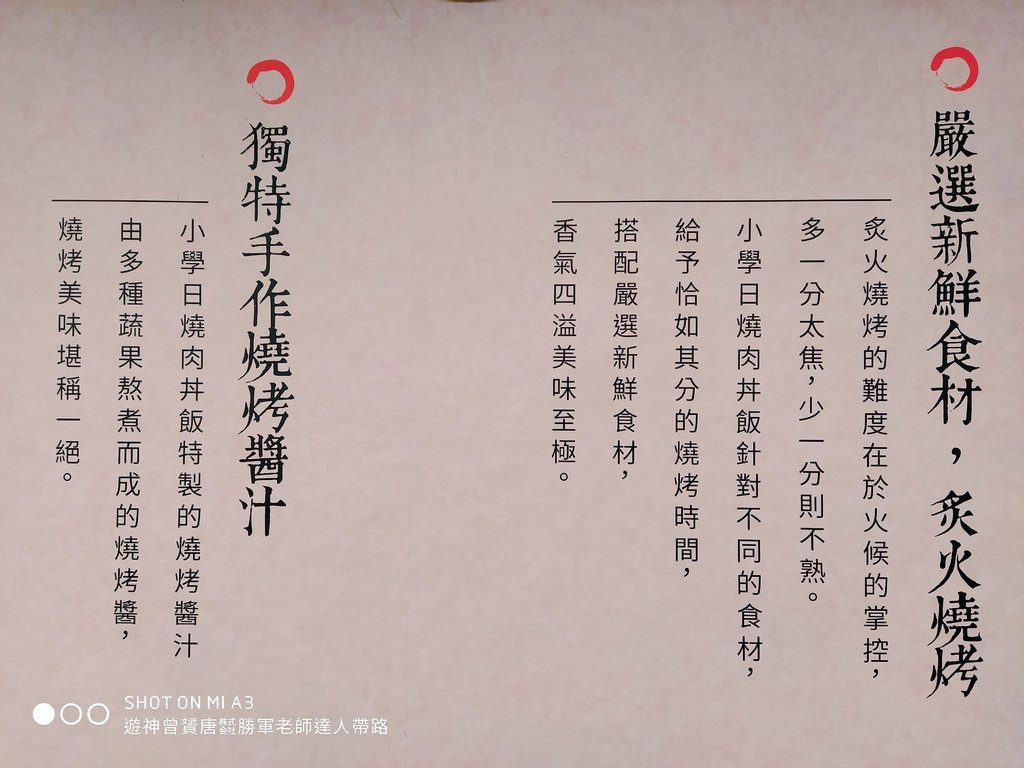 嚴選新鮮食材，炙火燒烤
炙火燒烤的難度在於火候的掌控，
多一分太焦，少一分則不熟。
小學日燒肉丼飯針對不同的食材，
給予恰如其分的燒烤時間，
搭配嚴選新鮮食材，
香氣四溢美味至極。
獨特手作燒烤醬汁
小學日燒肉丼飯特製的燒烤醬汁
由多種蔬果熬煮而成的燒烤醬，
燒烤美味堪稱一絕。
SHOT ON MI A3
遊神曾贇唐勝軍老師達人帶路